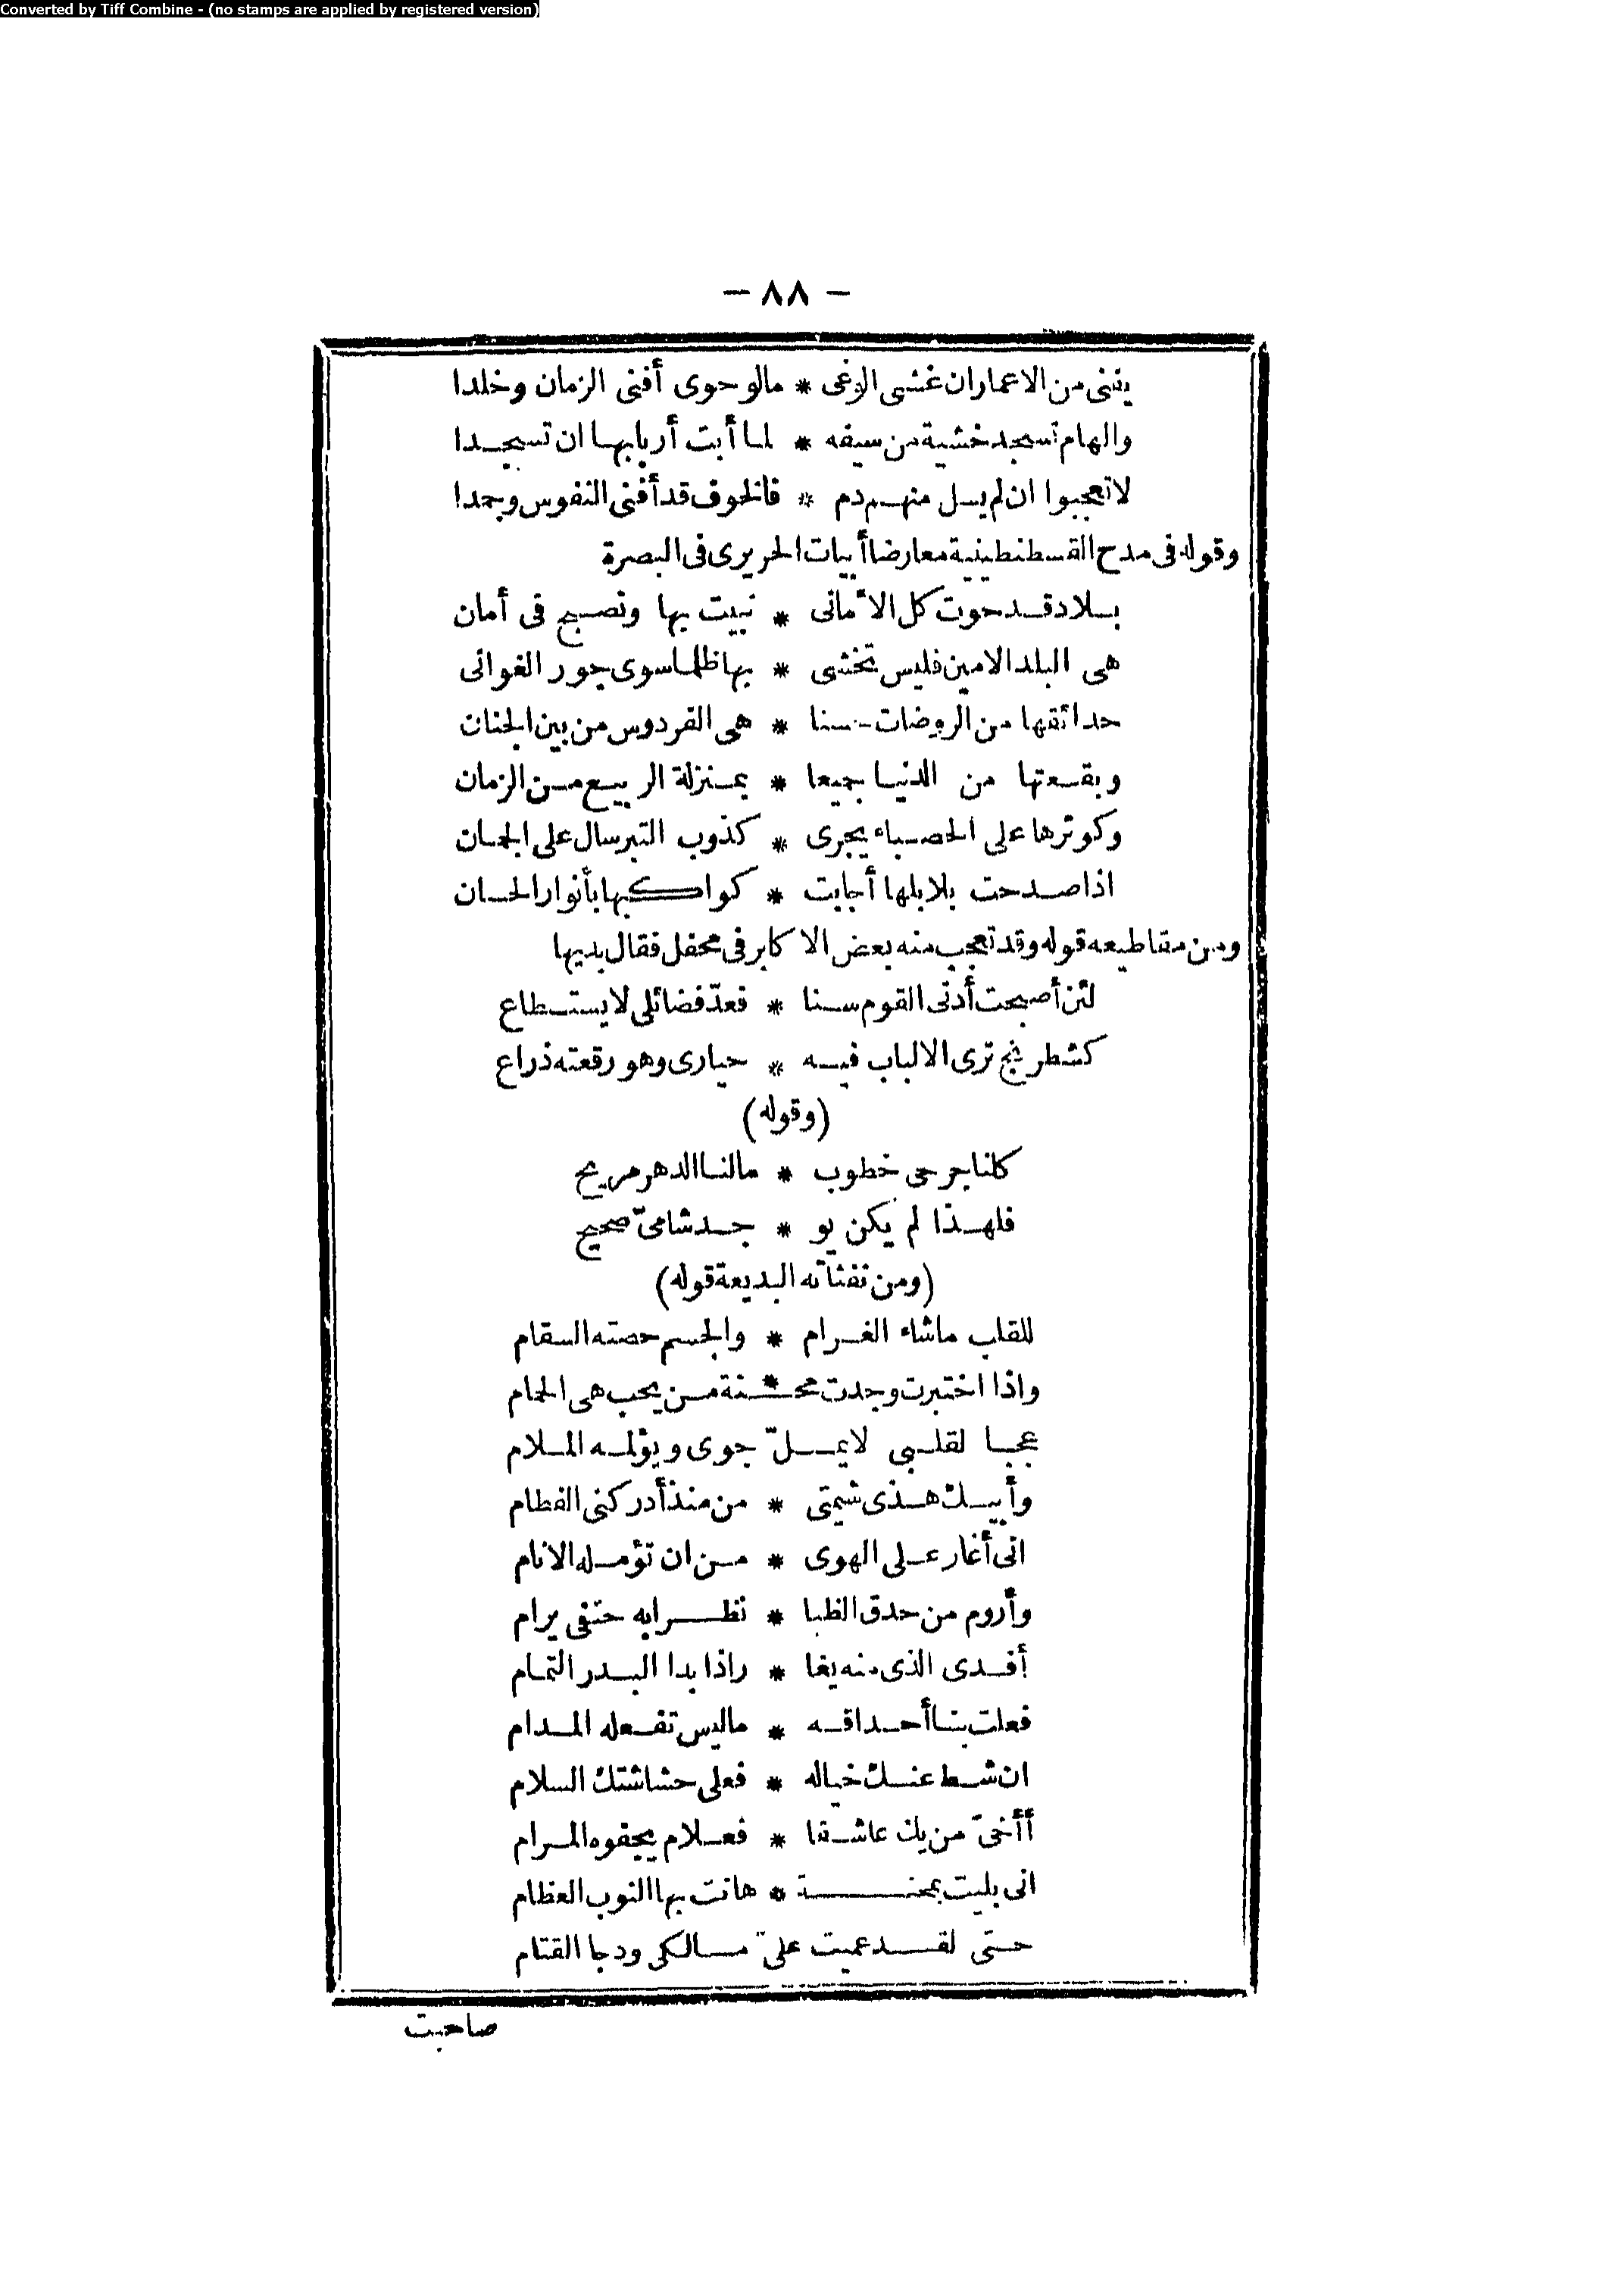 Converted by Tiff Combine - (no stamps are applied by registered version)
- ٨٨ -
يفنى من الاعمار ان غشى الوغى * مالو حوى أفنى الزمان وخلدا
والهام تسجد خشية من سيفه * لما أبت أربابها ان تسجدا
لا تعجبوا ان لم يسل منهم دم * فالخوف قد أفنى النفوس وجمدا
وقوله فى مدح القسطنطينية معارضا أبيات الحريرى فى البصرة
بلاد قد حوت كل الأمانى * نبيت بها ونصبح فى أمان
هى البلد الامين فليس تخشى * بها ظلما سوى جور الغوانى
حدائقها من الروضات حسنا * هى الفردوس من بين الجنان
وبقعتها من الدنيا جميعا * بمنزلة الربيع من الزمان
وكوثرها على الحصباء يجرى * كذوب التبر سال على الجمان
اذا صدحت بلابلها أجابت * كواكبها بأنوار الحسان
ومن مقاطيعه قوله وقد تعجب منه بعض الاكابر فى محفل فقال بديها
لئن أصبحت أدنى القوم سنا * فعدّ فضائلى لا يستطاع
كشطرنج ترى الالباب فيه * حيارى وهو رقعته ذراع
(وقوله)
كلنا جرحى خطوب * مالنا الدهر مريح
فلهذا لم يكن يو * جد شامىّ صحيح
(ومن نفثاته البديعة قوله)
للقلب ماشاء الغرام * والجسم حصته السقام
واذا اختبرت وجدت محـ * ـنة من يحب هى الحمام
عجبا لقلبى لا يملّ جوى ويؤلمه الملام
وأبيك هذى شيمتى * من منذ أدركنى الفطام
انى أغار على الهوى * من ان تؤمله الانام
وأروم من حدق الظبا * نظرا به حتفى يرام
أفدى الذى منه يغا * راذا بدا البدر التمام
فعلت بنا أحداقه * ماليس تفعله المدام
ان شط عنك خياله * فعلى حشاشتك السلام
أأخىّ من يك عاشقا * فعلام يجفوه المرام
انى بليت بمحنة * هانت بها النوب العظام
حتى لقد عميت علىّ مسالكى ودجا القتام
صاحبت